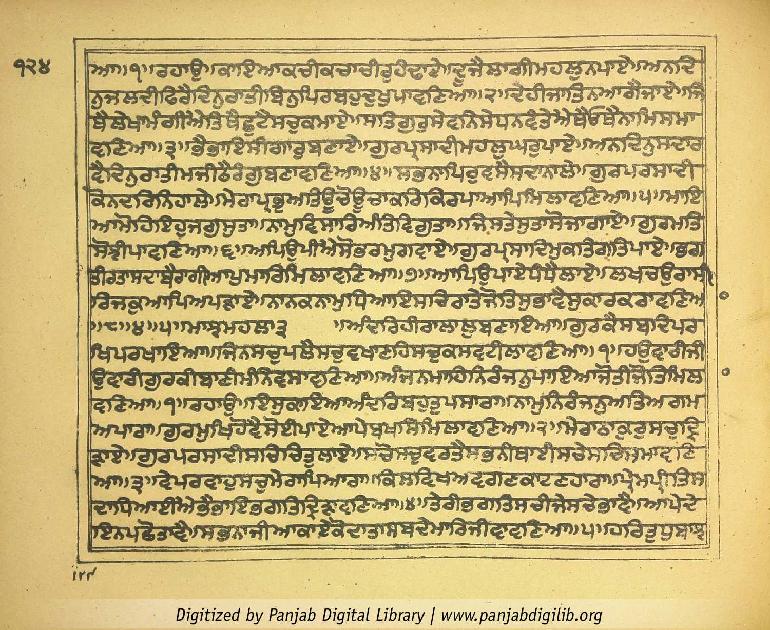 ੧੨੪
ਆ॥੧॥ਰਹਾਉ॥ਕਾਇਆਕਚੀਕਚਾਚੀਰੁਹੰਢਾਏ॥ਦੂਜੈਲਾਗੀਮਹਲੁਨਪਾਏ॥ਅਨਦਿ
ਨੁਜਲਦੀਫਿਰੈਦਿਨੁਰਾਤੀਬਿਨੁਪਿਰਬਹੁਦੁਖੁਪਾਵਣਿਆ॥੨॥ਦੇਹੀਜਾਤਿਨਆਗੈਜਾਏ॥ਜਿ
ਥੈਲੇਖਾਮੰਗੀਐਤਿਥੈਛੁਟੈਸਚੁਕਮਾਏ॥ਸਤਿਗੁਰੁਸੇਵਨਿਸੇਧਨਵੰਤੇਐਥੈਓਥੈਨਾਮਿਸਮਾ
ਵਣਿਆ॥੩॥ਭੈਭਾਇਸੀਗਾਰੁਬਣਾਏ॥ਗੁਰਪ੍ਰਸਾਦੀਮਹਲੁਘਰੁਪਾਏ॥ਅਨਦਿਨੁਸਦਾਰ
ਵੈਦਿਨੁਰਾਤੀਮਜੀਠੈਰੰਗੁਬਣਾਵਣਿਆ॥੪॥ਸਭਨਾਪਿਰੁਵਸੈਸਦਾਨਾਲੇ॥ਗੁਰਪਰਸਾਦੀ
ਕੋਨਦਰਿਨਿਹਾਲੇ॥ਮੇਰਾਪ੍ਰਭੁਅਤਿਊਚੋਊਚਾਕਰਿਕਿਰਪਾਆਪਿਮਿਲਾਵਣਿਆ॥੫॥ਮਾਇ
ਆਮੋਹਿਇਹੁਜਗੁਸੁਤਾ॥ਨਾਮੁਵਿਸਾਰਿਅੰਤਿਵਿਗੁਤਾ॥ਜਿਸਤੇਸੁਤਾਸੋਜਾਗਾਏ॥ਗੁਰਮਤਿ
ਸੋਝੀਪਾਵਣਿਆ॥੬॥ਅਪਿਉਪੀਐਸੋਭਰਮੁਗਵਾਏ॥ਗੁਰਪ੍ਰਸਾਦਿਮੁਕਤਿਗਤਿਪਾਏ॥ਭਗ
ਤੀਰਤਾਸਦਾਬੈਰਾਗੀਆਪੁਮਾਰਿਮਿਲਾਵਣਿਆ॥੭॥ਆਪਿਉਪਾਏਧੰਧੈਲਾਏ॥ਲਖਚਉਰਾਸੀ
ਰਿਜਕੁਆਪਿਅਪੜਾਏ॥ਨਾਨਕਨਾਮੁਧਿਆਇਸਚਿਰਾਤੇਜੋਤਿਸੁਭਾਵੈਸੁਕਾਰਕਰਾਵਣਿਆ
॥੮॥੪॥੫॥ਮਾਝਮਹਲਾ੩ ॥ਅੰਦਰਿਹੀਰਾਲਾਲੁਬਣਾਇਆ॥ਗੁਰਕੈਸਬਦਿਪਰ
ਖਿਪਰਖਾਇਆ॥ਜਿਨਸਚੁਪਲੈਸਚੁਵਖਾਣਹਿਸਚੁਕਸਵਟੀਲਾਵਣਿਆ॥੧॥ਹਉਵਾਰੀਜੀ
ਉਵਾਰੀਗੁਰਕੀਬਾਣੀਮੰਨਿਵਸਾਵਣਿਆ॥ਅੰਜਨਮਾਹਿਨਿਰੰਜਨੁਪਾਇਆਜੋਤੀਜੋਤਿਮਿਲਾ
ਵਣਿਆ॥੧॥ਰਹਾਉ॥ਇਸੁਕਾਇਆਅੰਦਰਿਬਹੁਤੁਪਸਾਰਾ॥ਨਾਮੁਨਿਰੰਜਨੁਅਤਿਅਗਮ
ਅਪਾਰਾ॥ਗੁਰਮੁਖਿਹੋਵੈਸੋਈਪਾਏਆਪੇਬਖਸਿਮਿਲਾਵਣਿਆ॥੨॥ਮੇਰਾਠਾਕੁਰੁਸਚੁਦ੍ਰਿ
ੜਾਏ॥ਗੁਰਪਰਸਾਦੀਸਚਿਚਿਤੁਲਾਏ॥ਸਚੋਸਚੁਵਰਤੈਸਭਨੀਥਾਈਸਚੇਸਚਿਸਮਾਵਣਿ
ਆ॥੩॥ਵੇਪਰਵਾਹੁਸਚੁਮੇਰਾਪਿਆਰਾ॥ਕਿਲਵਿਖਅਵਗਣਕਾਟਣਹਾਰਾ॥ਪ੍ਰੇਮਪ੍ਰੀਤਿਸ
ਦਾਧਿਆਈਐਭੈਭਾਇਭਗਤਿਦ੍ਰਿੜਾਵਣਿਆ॥੪॥ਤੇਰੀਭਗਤਿਸਚੀਜੇਸਚੇਭਾਵੈ॥ਆਪੇਦੇ
ਇਨਪਛੋਤਾਵੈ॥ਸਭਨਾਜੀਆਕਾਏਕੋਦਾਤਾਸਬਦੇਮਾਰਿਜੀਵਾਵਣਿਆ॥੫॥ਹਰਿਤੁਧੁਬਾਝ
੧੨੪
Digitized by Panjab Digital Library | www.panjabdigilib.org